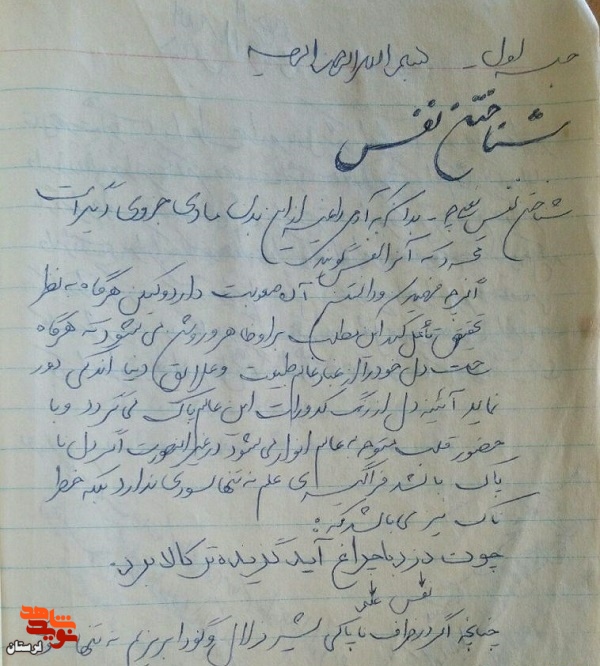 جلسه اول - بسم الله الرحمن الرحیم
شناختن نفس
شناختن نفس یعنی چه - بدان که آدمی را غیر از این بدن مادی جزوی دیگر است
مجرد که آنرا نفس گویند
اگرچه دانستن آن صعوبت دارد ولیکن هرگاه به نظر
تحقیق تأمل کند این مطلب بر او ظاهر و روشن می شود که هرگاه
دل خود را از غبار عالم طبیعت و علایق دنیا اندکی دور
نماید آئینه دل از زنگ کدورات این عالم پاک می گردد و با
حضور قلب متوجه عالم انوار می شود در غیر اینصورت اگر دل نا
پاک باشد فراگیری علم نه تنها سودی ندارد بلکه خطر
ناک نیز می باشد که:
چون دزد با چراغ آید گزیده تر کالا برد.
نفس علم
چنانچه اگر در ظرف ناپاکی شیر زلال و گوارا بریزیم نه تنها
شاهد
نوید
لرستان